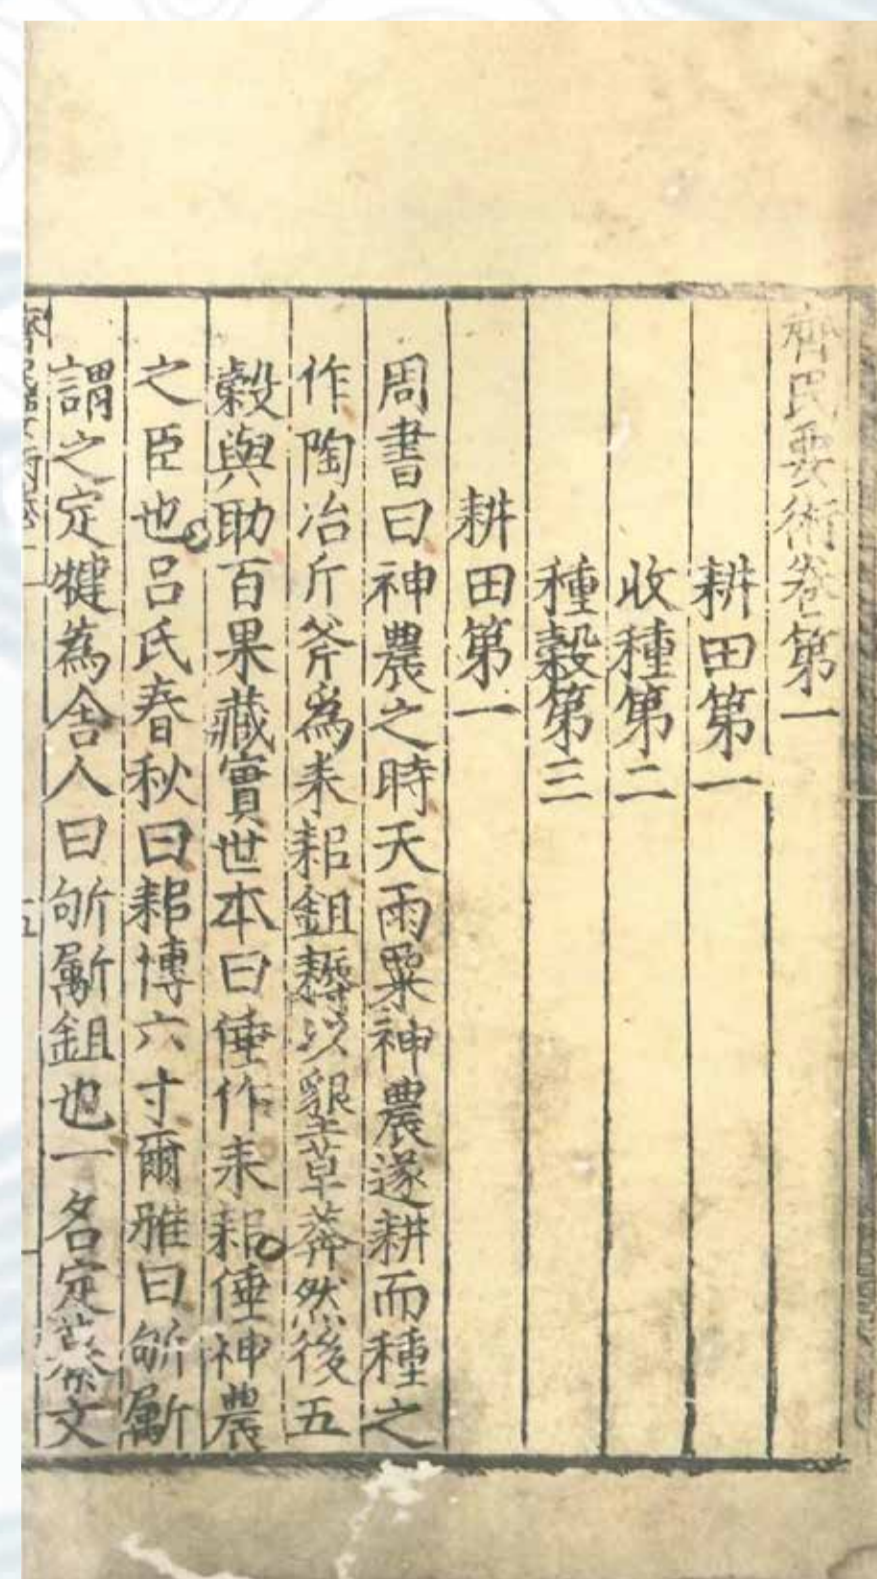 齊民要術卷第一
耕田第一
收種第二
種穀第三
耕田第一
周書曰神農之時天雨粟神農遂耕而種之
作陶冶斤斧爲耒耜鉏耨以墾草莽然後五
穀與助百果藏實世本曰倕作耒耜倕神農
之臣也呂氏春秋曰耜博六寸爾雅曰斪斸
謂之定犍爲舍人曰斪斸鉏也一名定纂文